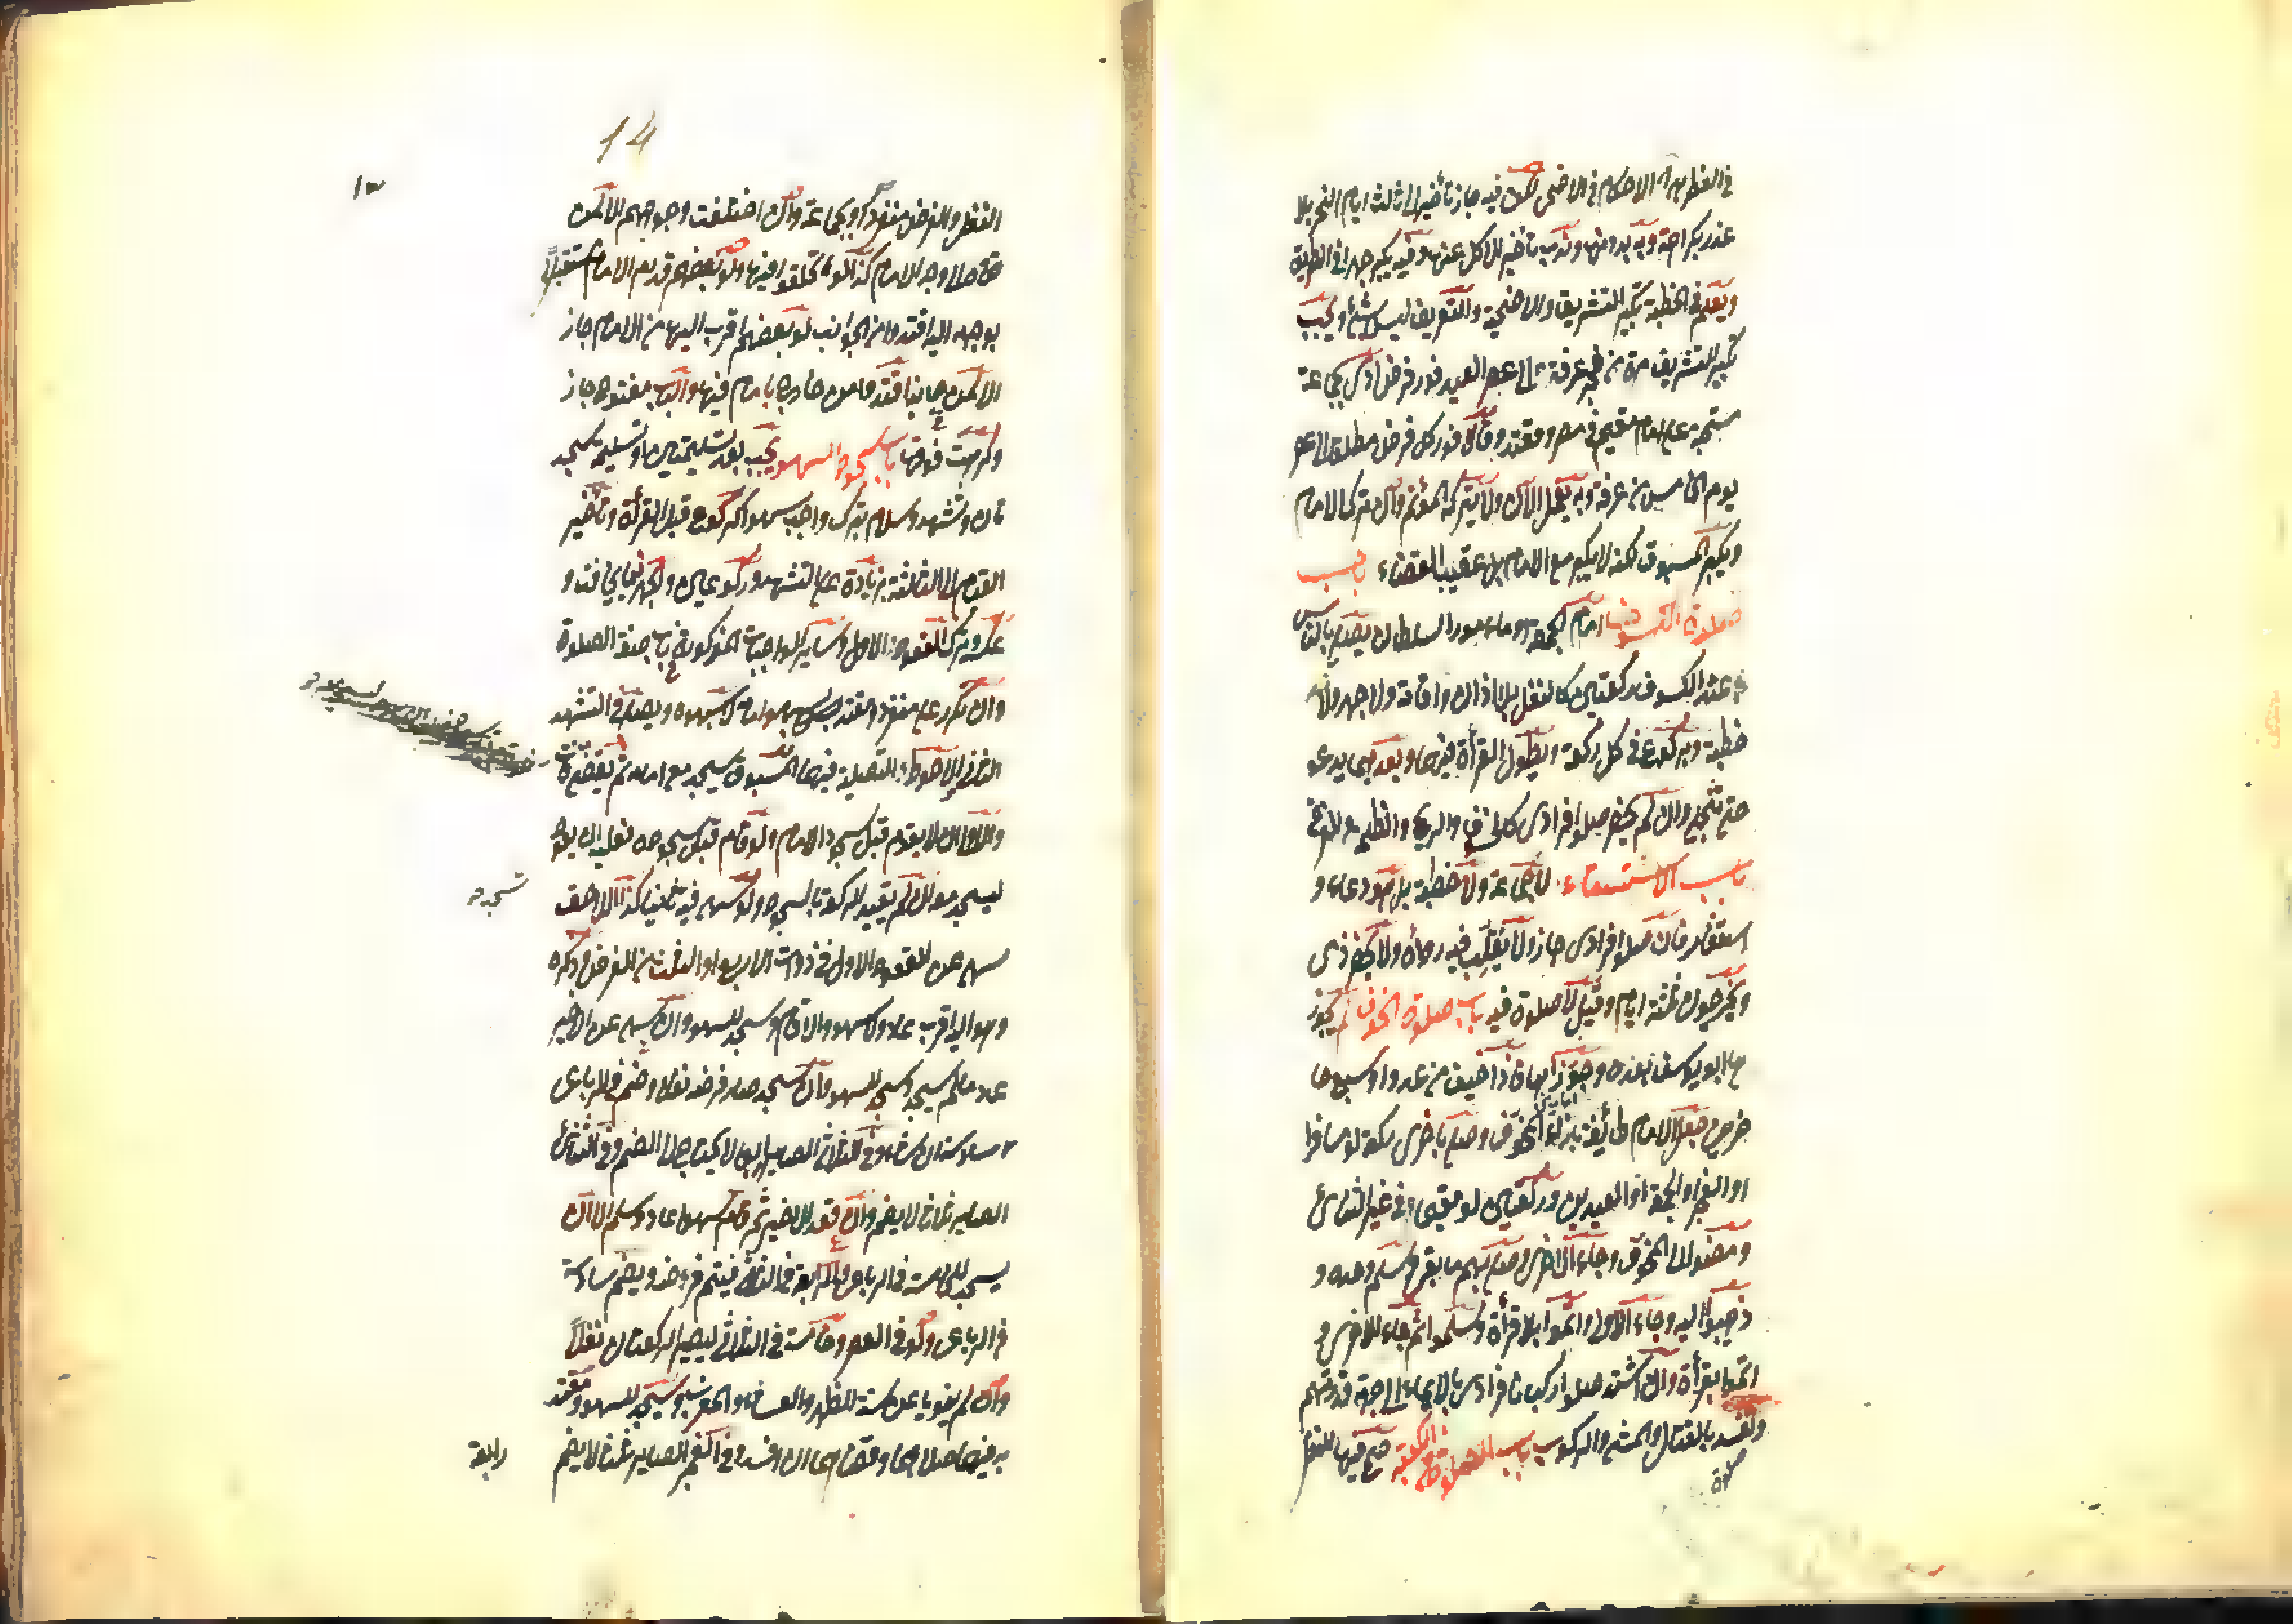 في الفطر من الاحكام في الاضحى لكن فيه جاز تأخير الى ثالث ايام النحر بلا
عذر بكراهة وبه بدونها وندب تأخير الاكل عنها وفيه يكبر جهرا في الطريق
ويعلم في الخطبة تكبير التشريق والاضحية والتعريف ليس بشئ ويجب
تكبير التشريق مرة من فجر عرفة الى عصر العيد فور فرض ادى بجماعة
مستحبة على امام مقيم في مصر ومقتد وقالا فور كل فرض مطلقا الى عصر
يوم الخامس من عرفة وبه يعمل الآن ولا يتركه المؤتم وان تركه الامام
ويكبر المسبوق لكنه لا يكبر مع الامام بل عقيب القضاء باب
صلوة الكسوف امام الجمعة او مأمور السلطان يصلي بالناس
عند الكسوف ركعتين كالنفل بلا اذان واقامة ولا جهر ولا
خطبة وبركوع في كل ركعة ويطول القرأة فيهما وبعدهما يدعو
حتى تنجلي وان لم يحضر صلوا فرادى كالخسوف والريح والظلمة والفزع
باب الاستسقاء لا جماعة ولا خطبة بل هو دعاء و
استغفار فان صلوا فرادى جاز ولا يقلب فيه رداه ولا يحضر ذمي
ويخرجون ثلثة ايام وقيل لا صلوة فيه باب صلوة الخوف لم يجوز
ها ابو يوسف بعده وجوزا بها فاذا خيف من عدو او سبع وما
خرص جعل الامام طائفة بازاء الخوف وصلى باخرى ركعة لو مسافرا
او الفجر او الجمعة او العيدين وركعتين لو مقيما وفي غير الثنائي
ومضوا الى الخوف وجاء الاخرى وصلى بهم ما بقي وسلم وحده و
ذهبوا اليه وجاء الاولى واتموا بلا قرأة وسلموا ثم جاء الاخرى و
اتموا بقرأة وان اشتد صلوا ركبانا فرادى بالايماء الى جهة قدرتهم
وتفسد بالقتال والمشي والركوب باب الصلوة في الكعبة صح فيها النفل
14
١٣
النفل والفرض منفردا وبجماعة وان اختلفت وجوههم الا لمن
قفاه الى وجه الامام كذا لو تحلقوا فيها ولو بعضهم قدام الامام مستقبلا
بوجهه اليه اقتدوا من الجوانب لو بعضهم اقرب اليها من الامام جاز
الا لمن في جانبه اقتدوا من خارجها بامام فيها والباب مفتوح جاز
وكرهت فوقها باب سجود السهو يجب بعد تسليمتين او تسليمة سجد
تان وتشهد وسلام بترك واجب سهوا كركوع قبل القرأة وتأخير
القيام الى الثالثة بزيادة على التشهد وركوعين والجهر فيما يخافت و
عكسه وترك القعود الاول وسائر الواجبات المذكورة في باب صفة الصلوة
وان تكرر على منفرد ومقتد بسهو امامه لا بسهوه ويصلى في التشهد
والاولى ان لا يقدم قبل سجود الامام ولو قام قبل سجوده فعليه ان يعود
ليسجد معه ان لم يقيد الركوع بالسجود ولو سها فيه ثانيا كذا اللاحق
سجدة
سها عن القعود الاول في ذوات الاربع او الثلث من الفرض وذكره
وهو اليه اقرب عاد ولا سهو والا قام وسجد للسهو وان سها عن الاخير
عاد ما لم يسجد وسجد للسهو وان سجد صار فرضه نفلا وضم في الرباعى
سادسة ان شاء وفي الثلاثى الصائر اربعا لا يحتاج الى الضم وفي الثنائى
الصائر ثلثا لا يضم وان قعد الاخير ثم قام سهوا عاد وسلم الا ان
يسجد للخامسة في الرباعى والرابعة في الثلاثى فيتم فرضه ويضم سادسة
في الرباعى ولو في العصر وخامسة في الثلاثى ليصير الركعتان نفلا
وان لم ينوبا عن سنة الظهر والعشاء والمغرب وسجد للسهو ومقتد
به فيهما صلاهما وقضاهما ان افسد وفي الفجر الصائر ثلثا لا يضم
رابعة